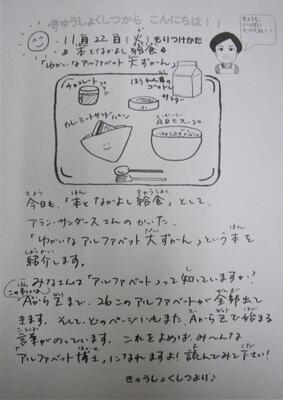 きゅうしょくしつから こんにちは！！
きょうも、
いっぱい
たべてね！！
11月22日(火)もりつけかた
本となかよし給食
「ゆかいなアルファベット大ずかん」
チョコレートプリン
ほうれん草の
サラダ
カレーミートサンドパン
ABCスープ
今日も、「本となかよし給食」として、
アラン・サンダースさんのかいた、
「ゆかいなアルファベット大ずかん」という本を
紹介します。
みなさんは「アルファベット」って知っていますか？
この本には、
AからZまで、26このアルファベットが全部出て
きます。そして、どのページにもまた、AからZで始まる
言葉がのっています。これをよめば、みーんな
「アルファベット博士」になれますよ！読んでみて下さい！
きゅうしょくしつより♪